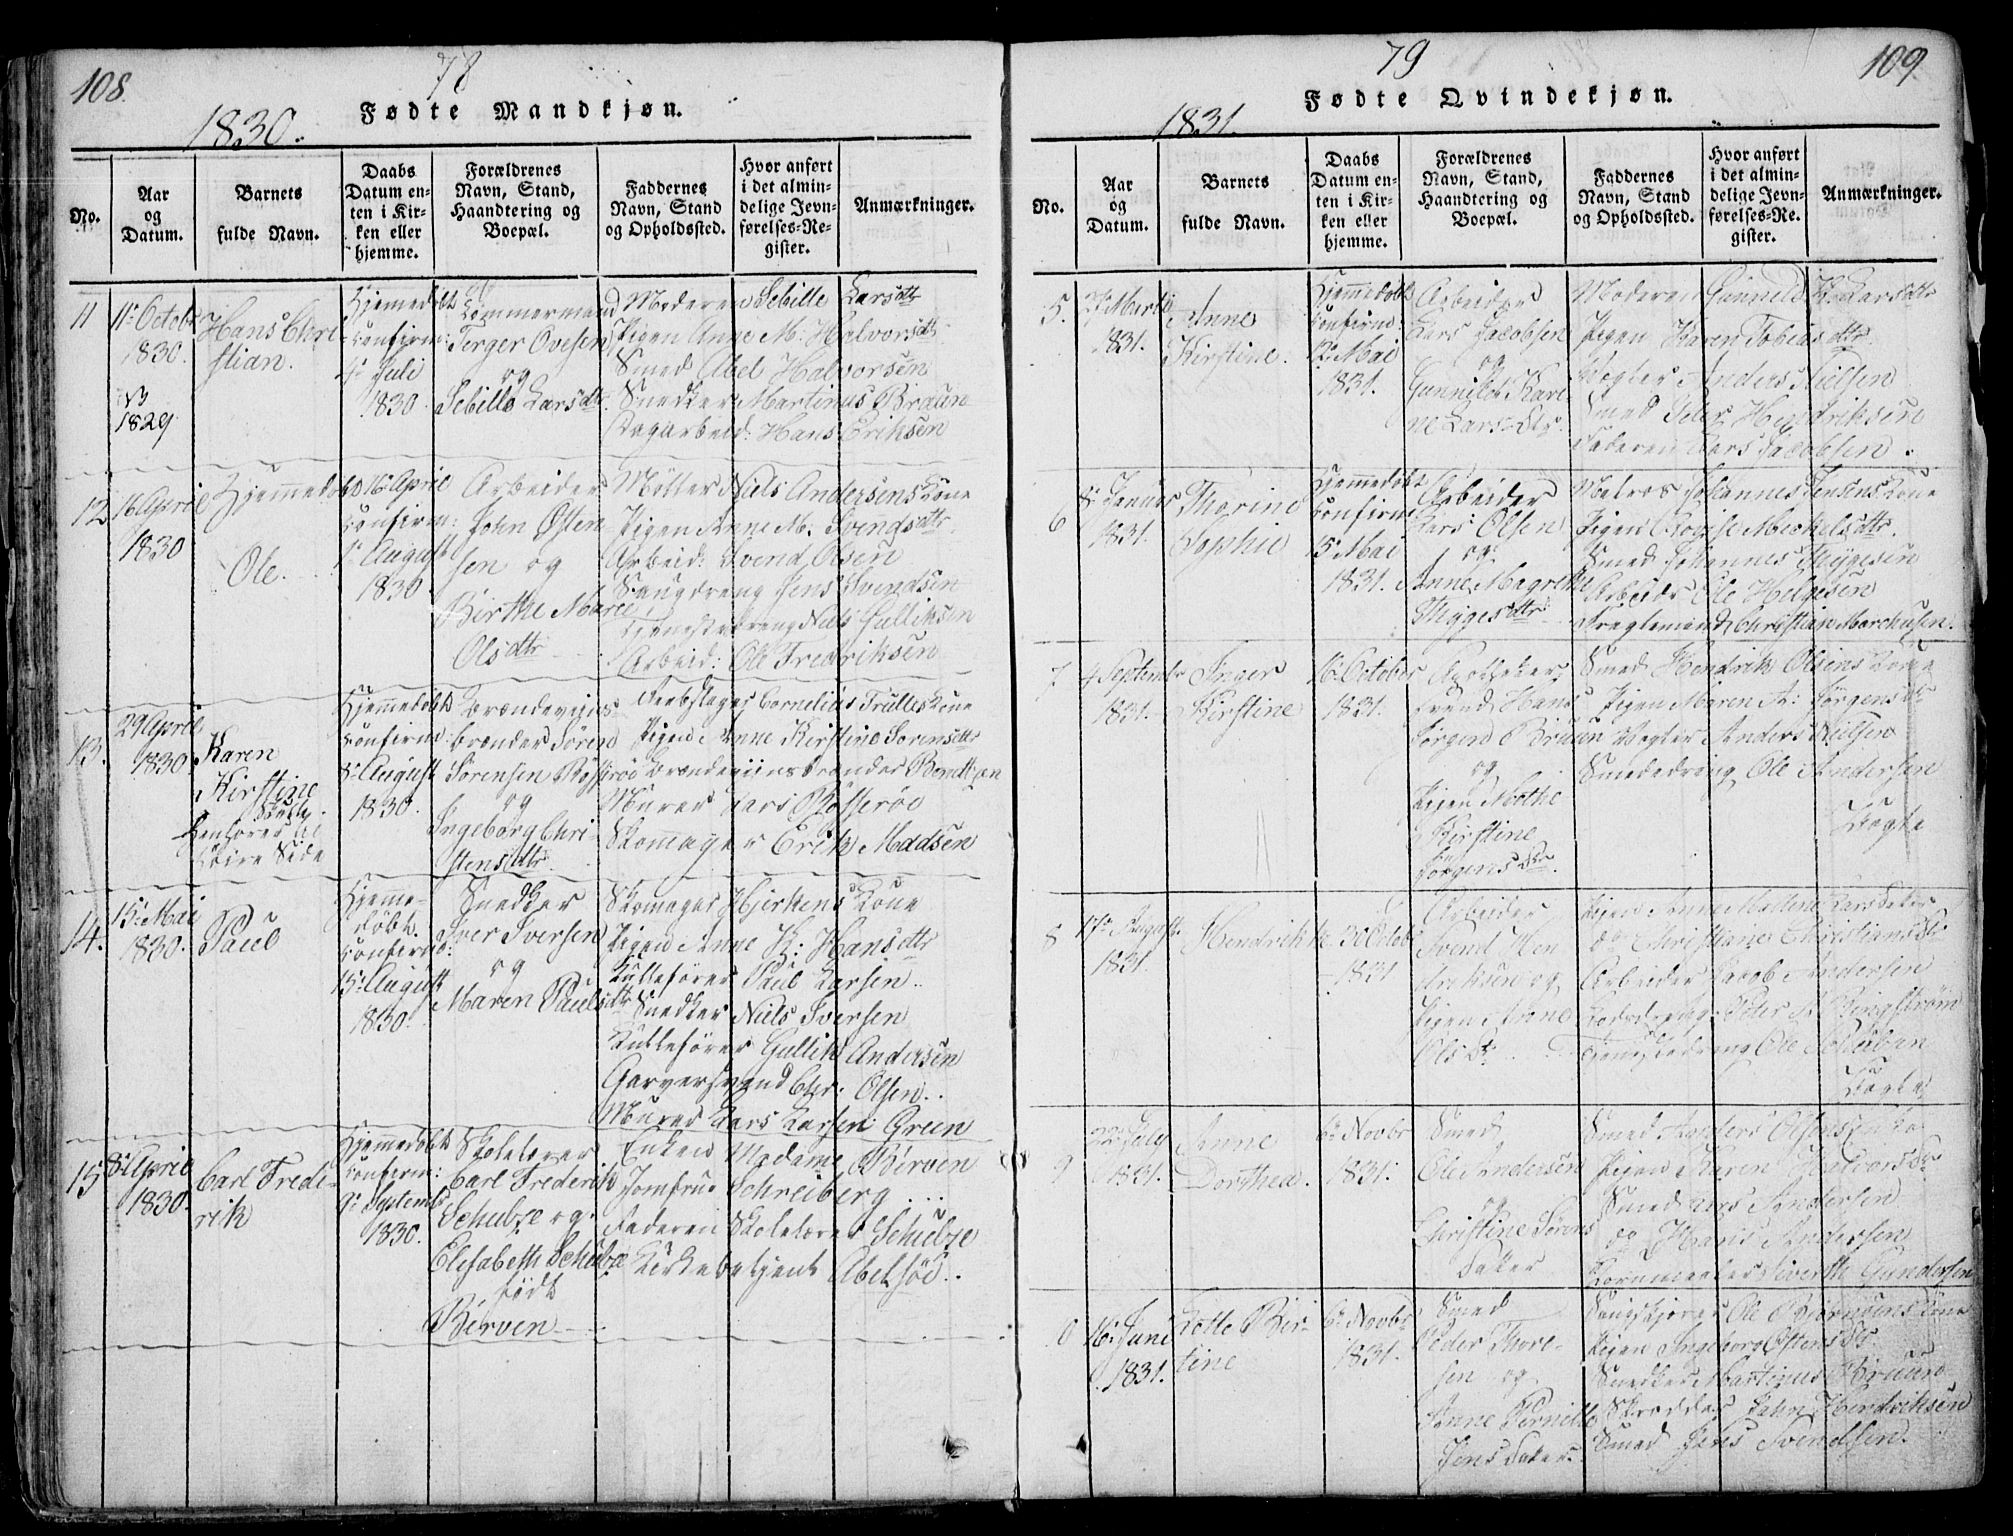 108
78
1830.
Fødte Mandkjøn.
No.
Aar
og
Datum.
Barnets
fulde Navn.
Daabs
Datum en-
ten i Kir-
ken eller
hjemme.
Forældrenes
Navn, Stand,
Haandtering og
Boepæl.
Faddernes
Navn, Stand
og Opholdssted.
Hvor anført
i det almin-
delige Jevn-
førelses-Re-
gister.
Anmærkninger.
11
11te Octobr
1830.
1829
Hans Chri
stian.
Hjemedøbt
confirm:
4de Juli
1830
Tømmermand
Terger Ovesen
og
Sebille Larsdtr.
Moderen Sebille Larsdtr
Pigen Anne M: Halvorsdtr
Smed Abel Halvorsen
Snedker Martinus Bruun
Dagarbeid: Hans Eriksen
12
16 April
1830
Hjemmedøbt
Ole.
16 April
confirm:
1te August
1830
Arbeider
John Østen
sen og
Birthe Marie
Olsdtr
Møller Niels Andersens Kone
Pigen Anne M. Svendsdtr
Arbeid: Svend Olsen
Saugdreng Jens Svendsen
Tjenestedreng Niels Gulliksen
Arbeid: Ole Fredriksen
13.
29 April
1830
Karen
Kirstine
Skulle
henføres til
høire Side
Hjemmedøbt
confirm:
8de August
1830.
Brændeviins
brænder Søren
Sørensen Røsserøe
og
Ingeborg Chri-
stensdtr
Reebslager Cornelius Trulles Kone
Pigen Anne Kirstine Sorensdtr
Brændeviinsbrænder Berntzen
Murer Lars Røsserøe
Skomager Erik Madsen
14.
15de Mai
1830.
Paul
Hjeme-
døbt
confirm:
15de August
1830.
Snedker
Iver Iversen
og
Maren Paulsdtr
Skomager Hjerkens Kone
Pigen Anne K: Hansdtr
Kullefører Paul Larsen
Snedker Niels Iversen
Kullefører Gullik Andersen
Garversvend Chr: Olsen.
Murer Lars Larsen Green
15
8de April
1830.
Carl Frede-
rik
Hjemedøbt
confirm:
9de Septembr
1830.
Skolelærer
Carl Frederik
Schulze og
Elisabeth Schulze
født
Børven
Enken Madame Børven
Jomfrue Schreiberg ...
Faderen Skolelærer Schulze
Kirkebetjent Abelsøe.
79
109
1831.
Fødte Qvindekjøn.
No.
Aar
og
Datum.
Barnets
fulde Navn.
Daabs
Datum en-
ten i Kir-
ken eller
hjemme.
Forældrenes
Navn, Stand,
Haandtering og
Boepæl.
Faddernes
Navn, Stand
og Opholdssted.
Hvor anført
i det almin-
delige Jevn-
førelses-Re-
gister.
Anmærkninger.
5.
Martii
1831.
Anne
Kirstine.
Hjemmedøbt
confirm:
12 Mai
1831.
Arbeider
Lars Jacobsen
og
Gunnild Kare-
ne Larsdtr
Moderen Gunnild K: Larsdtr
Pigen Karen Tobiasdtr
Vægter Anders Nielsen
Smed Peter Hendriksen
Faderen Lars Jacobsen.
6
8de Januar
1831.
Thorine
Sophie
Hjemmedøbt
confirm
15 Mai
1831.
Arbeider
Lars Olsen
og
Anne Magrethe
Thygesdtr
Matros Johannes Jensens Kone
Pigen Lovise Mickelsdtr
Smed Johannes Thygesen
Arbeider Ole Helgesen
Fragtemand Christian Marchusen.
7
4 Septembr
1831.
Inger
Kirstine
16 October
1831.
Apotheker
svend Hans
Jørgend Bruun
og
Pigen Marthe
Kirstine
Jørgensdtr.
Smed Hendrik Olsens Kone
Pigen Maren A: Jørgensdtr
Vægter Anders Nielsen
Smededreng Ole Andersen
Uægte
8
17de August.
1831.
Hendrikke
30 Octobr
1831
Arbeider
Svend Hen
driksen og
Pigen Anne
Olsdtr.
Pigen Anne Malene Larsdatter
do Christiane Christiansdtr
Arbeider Jacob Andersen
Peter Ringstrøm
Tjenestedreng Ole
Uægte
9
22de July
1831.
Anne
Dorthea.
6te Novbr
1831.
Smed
Ole Andersen
og
Christine Sørens
datter
Smed Anders Olsens Kone
Pigen Karen Halvorsdtr
Smed Lars Andersen
do Hans Andersen
Kornmaaler Siverth Gundersen
0
16de Juni
1831.
Lotte Bir-
tine
6te Novbr
1831.
Smed
Peder Thore-
sen og
Anne Pernille
Jensdatter.
Ole Bjørnsens Kone
Pigen Ingeborg Østensdtr.
Snedker Martinus Bruun
Skrædder John Hendriksen
Smed Jens Svendsen.